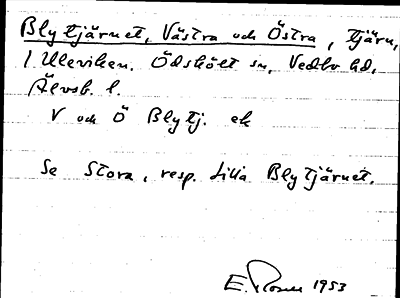 Blytjärnet, Västra och Östra, tjärn,
i Uleviken. Ödskölt sn, Vedbo hd,
Älvsb. l.
V och Ö Blytj. ek
Se Stora, resp. Lilla Blytjärnet.
E. 1953